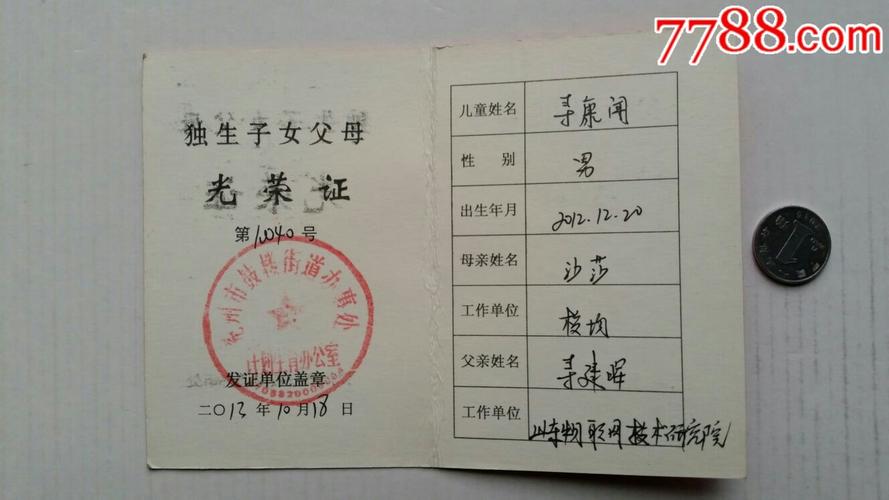 7788.com
独生子女父母
光荣证
第10040号
兖州市鼓楼街道办事处
计划生育办公室
发证单位盖章
二〇13年10月18日
儿童姓名 寻康闻
性别 男
出生年月 2012.12.20
母亲姓名 沙莎
工作单位
父亲姓名 寻建晖
工作单位 山东物联网技术研究院